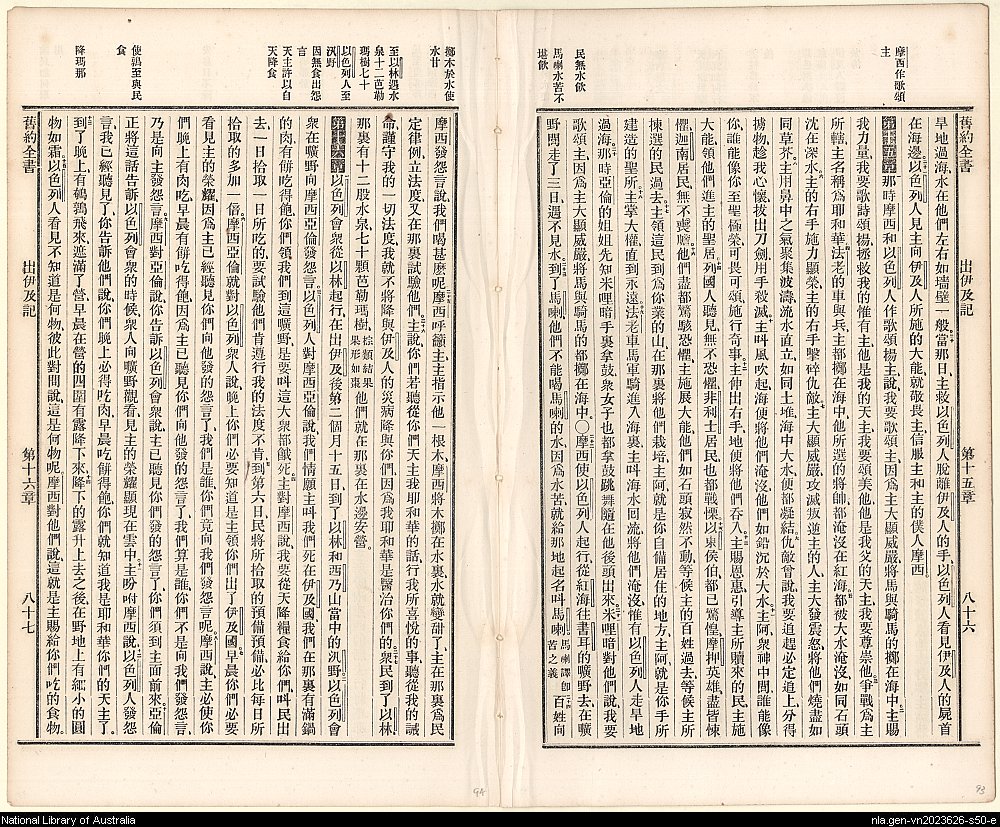 摩西作歌頌
主
民無水飲
馬喇水苦不
堪飲
舊約全書 出伊及記 第十五章 八十六
旱地過海水在他們左右如墻壁一般當那日主救以色列人脫離伊及人的手以色列人看見伊及人的屍首
在海邊以色列人見主向伊及人所施的大能就敬畏主信服主和主的僕人摩西
第十五章那時摩西和以色列人作歌頌揚主說我要歌頌主因爲主大顯威嚴將馬與騎馬的擲在海中主賜
我力量我要歌詩頌揚拯救我的惟有主他是我的天主我要頌美他他是我父的天主我要尊崇他爭戰爲主
所轄主名稱爲耶和華法老的車與兵主都擲在海中他所選的將帥都淹沒在紅海都被大水淹沒如同石頭
沈在深水主的右手施力顯榮主的右手擊碎仇敵主大顯威嚴攻滅叛逆主的人主大發震怒將他們燒盡如
同草芥主用鼻中之氣聚集波濤流水直立如同土堆海中大水便都凝結仇敵曾說我要追趕必定追上分得
擄物趁我心懷拔出刀劍用手殺滅主叫風吹起海便將他們淹沒他們如鉛沉於大水主阿衆神中間誰能像
你誰能像你至聖極榮可畏可頌施行奇事主伸出右手地便將他們吞入主賜恩惠引導主所贖來的民主施
大能領他們進主的聖居列國人聽見無不恐懼非利士居民也都戰慄以東侯伯都已驚惶摩押英雄盡皆悚
懼迦南居民無不喪膽他們盡都驚駭恐懼主施展大能他們如石頭寂然不動等候主的百姓過去等候主所
揀選的民過去主領這民到爲你業的山在那裏將他們栽培主阿就是你自備居住的地方主阿就是你手所
建造的聖所主掌大權直到永遠法老車馬車騎進入海裏主叫海水回流將他們淹沒惟有以色列人走旱地
過海那時亞倫的姐姐先知米哩暗手裏拿鼓衆女子也都拿鼓跳舞隨在他後頭出來米哩暗對他們說我要
歌頌主因爲主大顯威嚴將馬與騎馬的都擲在海中○摩西使以色列人起行從紅海往書珥的曠野去在曠
野間走了三日遇不見水到了馬喇他們不能喝馬喇的水因爲水苦就給那地起名叫馬喇馬喇譯卽苦之義百姓向
擲木於水使
水甘
至以林遇水
泉十二芭勒
瑪樹七十
以色列人至
汛野
因無食出怨
言
天主許以自
天降食
使鵪至與民
食
降瑪那
摩西發怨言說我們喝甚麽呢摩西呼籲主主指示他一根木摩西將木擲在水裏水就變甜了主在那裏爲民
定律例立法度又在那裏試驗他們主說你們若聽從你們天主我耶和華的話行我所喜悅的事聽從我的誡
命謹守我的一切法度我就不將降與伊及人的災病降與你們因爲我耶和華是醫治你們的衆民到了以林
那裏有十二股水泉七十顆芭勒瑪樹棕類結果果形如棗他們就在那裏在水邊安營
第十六章以色列會衆從以林起行在出伊及後第二個月十五日到了以林和西乃山當中的汛野以色列會
衆在曠野向摩西亞倫發怨言以色列人對摩西亞倫說我們情願主叫我們死在伊及國我們在那裏有滿鍋
的肉有餅吃得飽你們領我們到這曠野是要叫這大衆都餓死主對摩西說我要從天降糧食給你們叫民出
去一日拾取一日所吃的要試驗他們肯遵行我的法度不肯到第六日民將所拾取的預備預備必比每日所
拾取的多加一倍摩西亞倫就對以色列衆人說晚上你們必要知道是主領你們出了伊及國早晨你們必要
看見主的榮耀因爲主已經聽見你們向他發的怨言了我們是誰你們竟向我們發怨言呢摩西說主必使你
們晚上有肉吃早晨有餅吃得飽因爲主已聽見你們向他發的怨言了我們算是誰你們不是向我們發怨言
乃是向主發怨言摩西對亞倫說你告訴以色列會衆說主已聽見你們發的怨言了你們須到主面前來亞倫
正將這話告訴以色列會衆的時候衆人向曠野觀看見主的榮耀顯現在雲中主吩咐摩西說以色列人發怨
言我已經聽見了你告訴他們說你們晚上必得吃肉早晨吃餅得飽你們就知道我是耶和華你們的天主了
到了晚上有鵪鶉飛來遮滿了營早晨在營的四圍有露降下來降下的露升上去之後在野地上有細小的圓
物如霜以色列人看見不知道是何物彼此對問說這是何物呢摩西對他們說這就是主賜給你們吃的食物
舊約全書 出伊及記 第十六章 八十七
94
93
National Library of Australia
nla.gen-vn2023626-s50-e